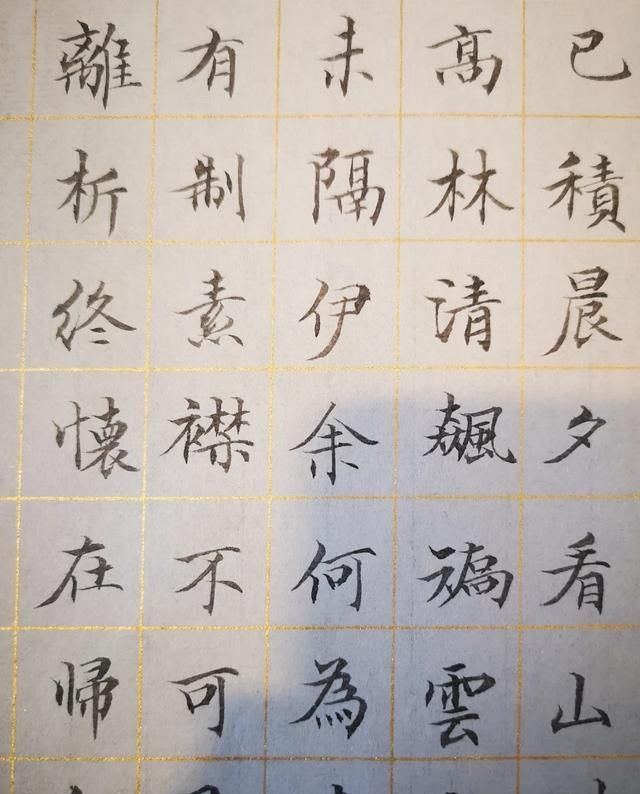 已積晨夕看山
髙林清飆矯雲
未隔伊余何為
有制素襟不可
離析終懷在帰